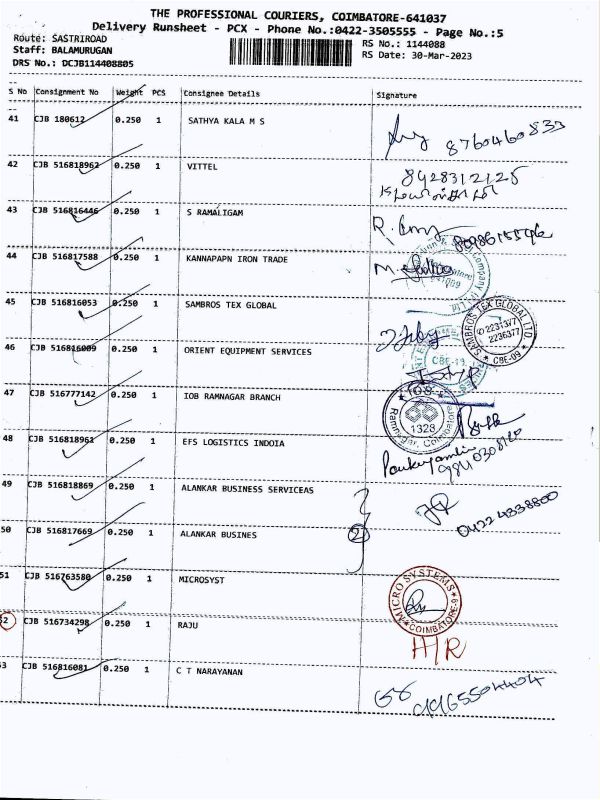 THE PROFESSIONAL COURIERS, COIMBATORE-641037
Delivery Runsheet - PCX - Phone No.:0422-3505555 - Page No.:5
Route: SASTRIROAD
RS No.: 1144088
Staff: BALAMURUGAN
RS Date: 30-Mar-2023
DRS No.: DCJB114408805
S No Consignment No Weight PCS Consignee Details Signature
41 CJB 180612 0.250 1 SATHYA KALA M S
8760460833
42 CJB 516818962 0.250 1 VITTEL 8428312125
43 CJB 516816446 0.250 1 S RAMALIGAM
44 CJB 516817588 0.250 1 KANNAPAPN IRON TRADE
45 CJB 516816053 0.250 1 SAMBROS TEX GLOBAL
SAMBROS TEX GLOBAL LTD.
2231377
2236377
CBE-09
46 CJB 516816009 0.250 1 ORIENT EQUIPMENT SERVICES
47 CJB 516777142 1 IOB RAMNAGAR BRANCH
1328
Ramnagar, Coimbatore
48 CJB 516818961 0.250 1 EFS LOGISTICS INDOIA
9840308120
49 CJB 516818869 0.250 1 ALANKAR BUSINESS SERVICEAS
0422 4338800
50 CJB 516817669 0.250 1 ALANKAR BUSINES 2
51 CJB 516763580 0.250 1 MICROSYST
MICRO SYSTEMS
COIMBATORE-9
52 CJB 516734298 0.250 1 RAJU
H/R
53 CJB 516816081 0.250 1 C T NARAYANAN
9965504404